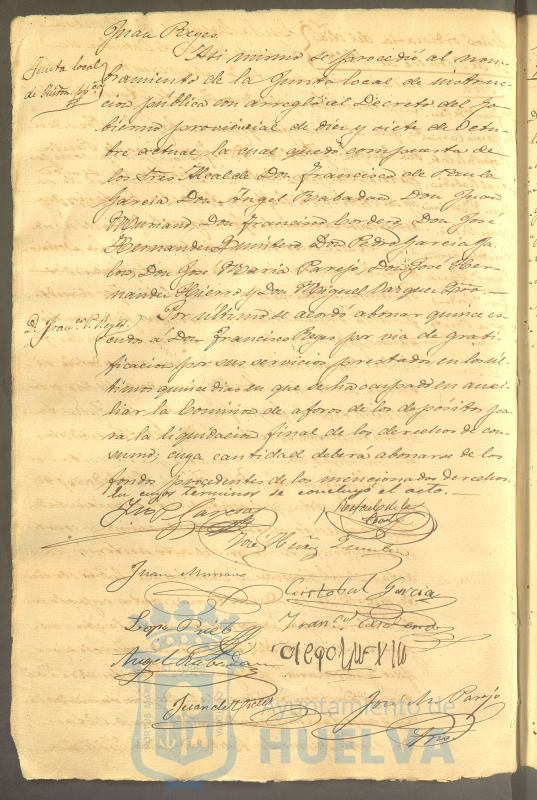 Juan Reyes.
Asi mismo se procedió al nom-
Junta local
de Instón. púb.ca
bramiento de la Junta local de instruc-
cion pública con arreglo al Decreto del Go-
bierno provincial de diez y siete de Octu-
bre actual la cual quedó compuesta de
los tres Alcalde Don Francisco de Paula
Garcia, Don Ángel Rabadan, Don Juan
Muriano, Don Francisco Cordero, Don José
Hernandez Don Pedro Garcia Ja-
lon, Don José Maria Parejo, Don José Her-
nandez Hierro y Don Miguel Vazquez
D. Fran.co P. Reyes
Por último se acordó abonar quince es-
cudos á Don Francisco Reyes por via de grati-
ficacion por sus servicios prestados en los úl-
timos quince dias en que se ha ocupado en auxi-
liar la Comision de aforos de los depósitos pa-
ra la liquidacion final de los derechos de con-
sumo; cuya cantidad deberá abonarse de los
fondos procedentes de los mencionados derechos.
En cuyos terminos se concluyó el acto.
Juan Muriano
Cristobal Garcia
Angel Rabadan
José M. Parejo
Ayuntamiento de
HUELVA